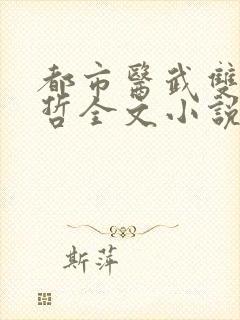 都市醫武雙
哲全文小說
斯萍